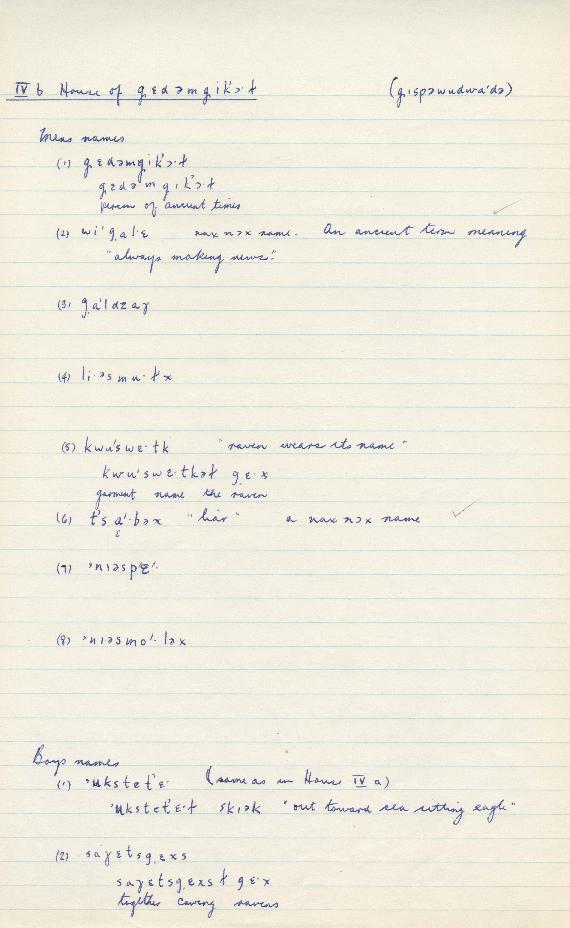 IV b House of g̣ɛdəmgik'ɔ·ł (g̣ıspəwudwa'də)
Mens names
(1) g̣ɛdəmgik'ɔ·ł
g̣ɛdəm g̣ık'ɔ·ł
person of ancient times
(2) wi'g̣al·ɛ nax nɔx name. An ancient term meaning
"always making news."
(3) g̣a'ldzaɣ
(4) li·əsmu·łx
(5) kwu'swɛ·tk "raven wears its name"
kwu'swɛ·tkəł g̣ɛ·x
garment name the raven
(6) t's a'·bəx "liar" a nax nɔx name
ɛ
(7) 'nıəspɛ'·
(8) 'nıəsmo'·ləx
Boys names
(1) 'ukstet'ɛ· (same as in House IV a)
'ukstet'ɛ·ł skıək "out toward sea sitting eagle"
(2) saɣɛtsg̣ɛxs
saɣɛtsg̣ɛxsł g̣ɛ·x
together cawing ravens